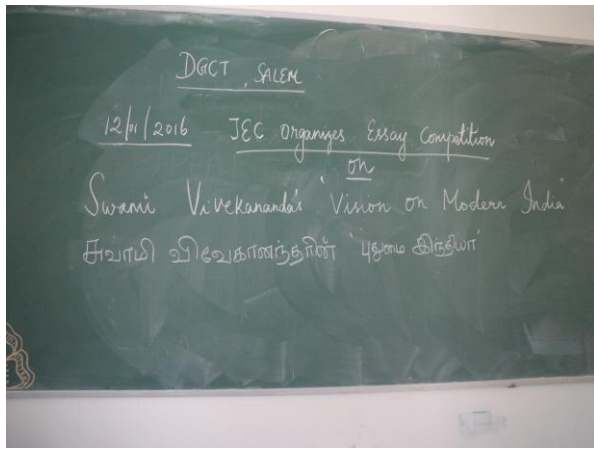 DGCT, SALEM
12/01/2016 IEC Organizes Essay Competition
on
Swami Vivekananda's 'Vision on Modern India'
சுவாமி விவேகானந்தரின் 'புதுமை இந்தியா'